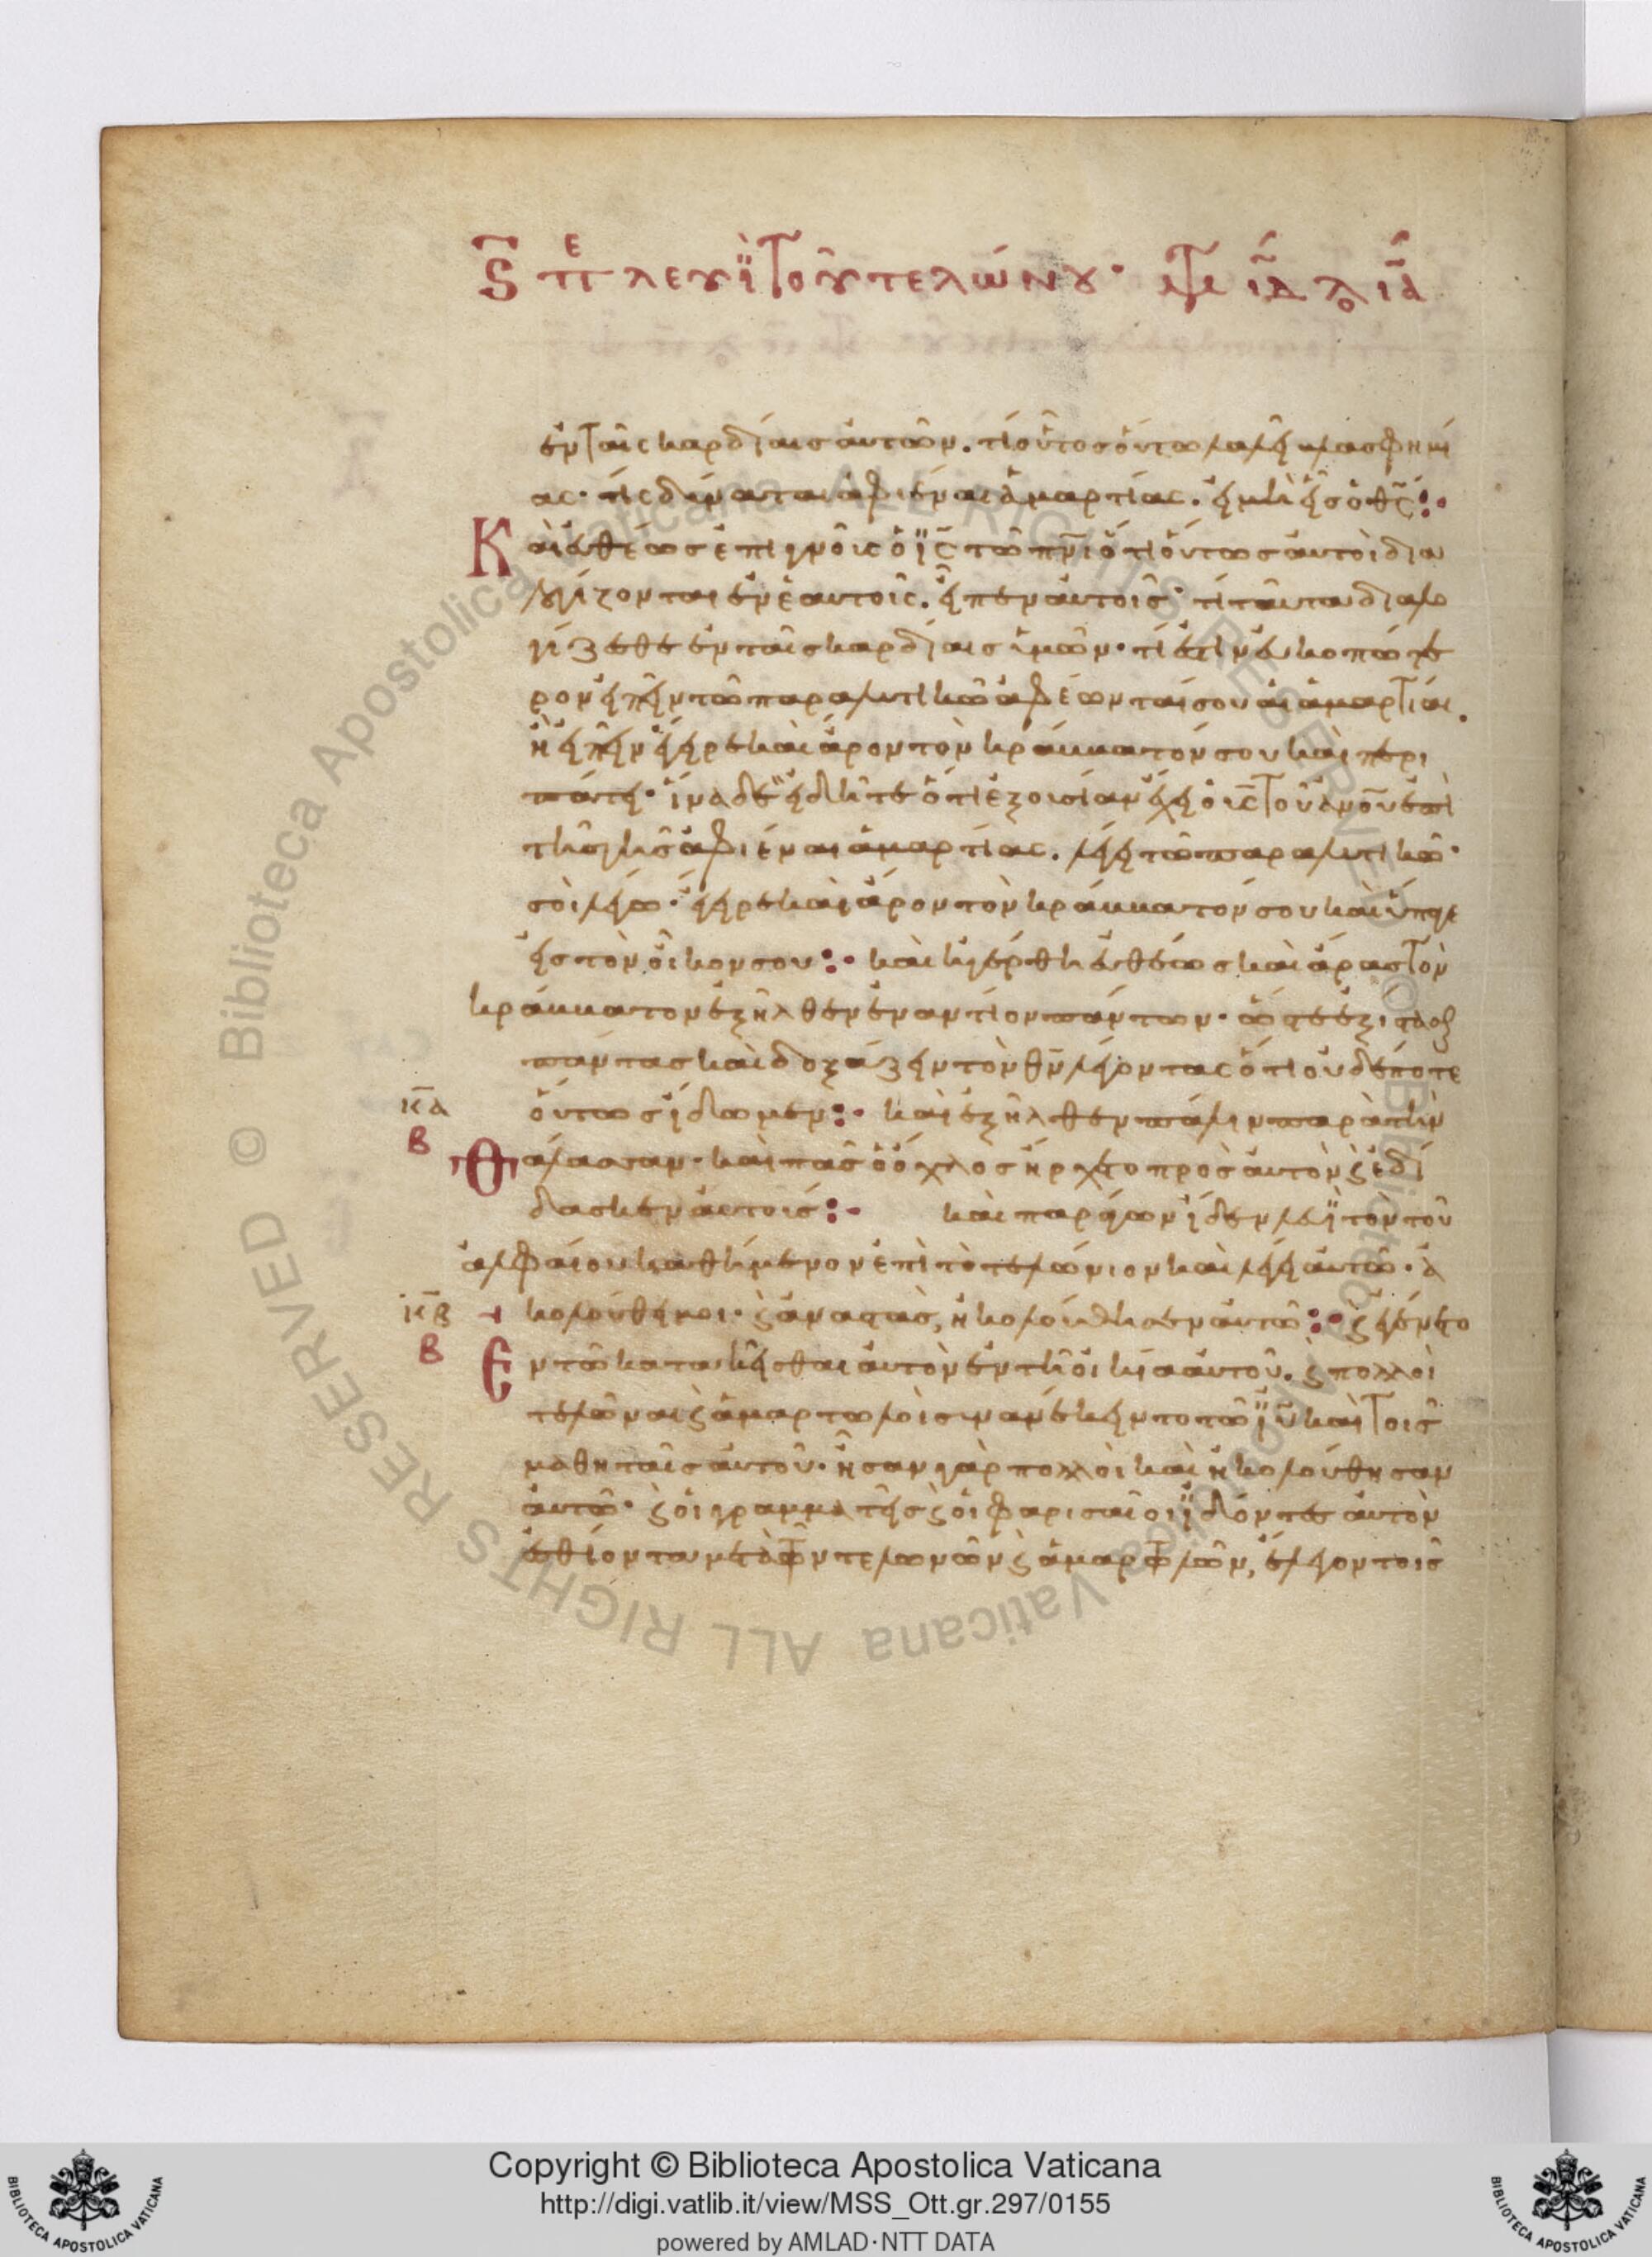 Ϛ πε λευϊ τοῦ τελώνου· Μτ ιδ λο ιδ
ἐν ταῖς καρδίαις αὐτῶν. τί οὗτος οὕτω λαλεῖ βλασφημί
ας· τίς δύναται ἀφιέναι ἁμαρτίας. εἰ μὴ εἷς ὁ θς:·
Καὶ εὐθέως ἐπιγνοὺς ὁ ις τῶ πνι ὅτι οὕτως αὐτοὶ δια
λογίζονται ἐν ἑαυτοῖς. εἶπεν αὐτοῖς· τί ταῦτα διαλο
γίζεσθε ἐν ταῖς καρδίαις ὑμῶν· τί ἐστιν εὐκοπώτε
ρον εἰπεῖν τῶ παραλυτικῶ ἀφέωνταί σου αἱ ἁμαρτίαι.
ἢ εἰπεῖν ἔγειρε καὶ ἆρον τὸν κράββατόν σου καὶ περι
πάτει· ἵνα δὲ εἰδῆτε ὅτι ἐξουσίαν ἔχει ὁ υς τοῦ ανου ἐπὶ
τῆς γῆς ἀφιέναι ἁμαρτίας. λέγει τῶ παραλυτικῶ·
σοὶ λέγω· ἔγειρε καὶ ἆρον τὸν κράββατόν σου καὶ ὕπαγε
εἰς τὸν οἶκον σου:· καὶ ἠγέρθη εὐθέως καὶ ἄρας τὸν
κράββατον ἐξῆλθεν ἐναντίον πάντων· ὥστε ἐξίστασθ
πάντας καὶ δοξάζειν τὸν θν λέγοντας ὅτι οὐδέποτε
κα οὕτως εἴδωμεν:· καὶ ἐξῆλθεν πάλιν παρὰ τὴν
β Θάλασσαν· καὶ πᾶς ὁ ὄχλος ἤρχετο πρὸς αὐτὸν ϗ ἐδί
δασκεν αὐτούς:· καὶ παράγων ἴδεν λευῒ τὸν τοῦ
ἀλφαίου καθήμενον ἐπὶ τὸ τελώνιον καὶ λέγει αὐτῶ· ἀ
κβ κολούθει μοι· ϗ ἀναστὰς, ἠκολούθησεν αὐτῶ:· ϗ ἐγένετο
β Ε ν τῶ κατακεῖσθαι αὐτὸν ἐν τῆ οἰκία αὐτοῦ. ϗ πολλοὶ
τελῶναι ϗ ἁμαρτωλοὶ συνανέκειντο τῶ ιυ καὶ τοῖς
μαθηταῖς αὐτοῦ· ἦσαν γὰρ πολλοὶ καὶ ἠκολούθησαν
αὐτῶ· ϗ οἱ γραμματεῖς ϗ οἱ φαρισαῖοι ἰδόντες αὐτὸν
ἐσθίοντα μετὰ τῶν τελωνῶν ϗ ἁμαρτωλῶν, ἔλεγον τοῖς
Copyright © Biblioteca Apostolica Vaticana
http://digi.vatlib.it/view/MSS_Ott.gr.297/0155
powered by AMLAD·NTT DATA
BIBLIOTECA APOSTOLICA VATICANA
BIBLIOTECA APOSTOLICA VATICANA
© Biblioteca Apostolica Vaticana ALL RIGHTS RESERVED © Biblioteca Apostolica Vaticana ALL RIGHTS RESERVED